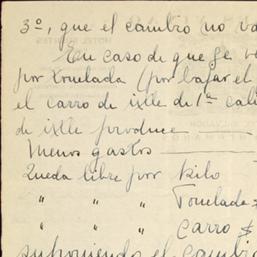 3º, que el cambio no va
En caso de que se ve
por tonelada (por bajar el
el carro de ixtle de 1ª cali
de ixtle produce
Menos gastos
Queda libre por kilo
" " " Tonelada
" " " Carro $
suponiendo el cambio